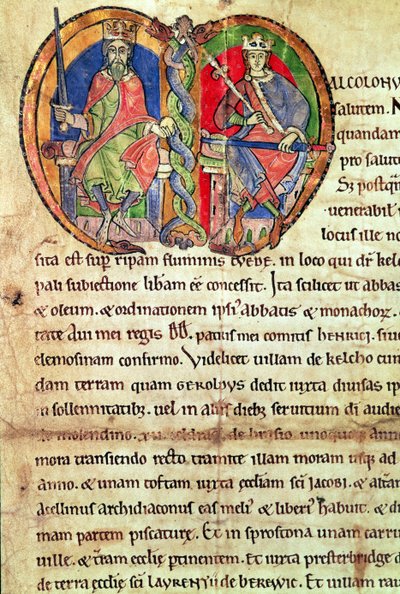 ALCOLONVS
salutem. N
quandam
pro salut
Sʒ postqͣ
venerabil
locus ille no
sita est supͬ ripam fluminis TVEDE. in loco qui dr̄ kelc
pali subiectione libam eē concessit. Ita scilicet ut abbas
& oleum. & ordinationem ipsi᾽ abbatis & monachoꝝ
tate Aui mei regis DD. patris mei comitis HENRICI.
elemosinam confirmo. Videlicet uillam de kelcho cum
dam terram quam GEROLDVS dedit iuxta diuisas ip
in sollennitatibꝫ. uel in aliis diebꝫ seruitium di audie
de molendino. celdras de brasio. unoquoqꝫ anno
mora transiendo recto tramite illam moram usqꝫ ad
anno. & unam toftam iuxta eccl̄iam sc̄i JACOBI. &
Ascellinus archidiaconus eas meli᾽ & liberi᾽ habuit. & d
mam partem piscature. Et in sprostona unam carru
uille. & t͛ram eccl̄ie ꝑtinentem. Et iuxta presterbridge
de terra eccl̄ie sc̄i LAVRENTII de BEREWIC. Et uillam